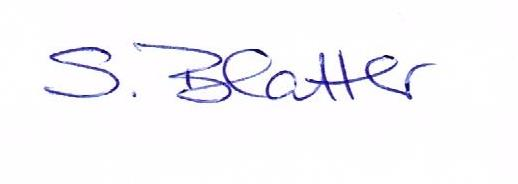 S. Blatter